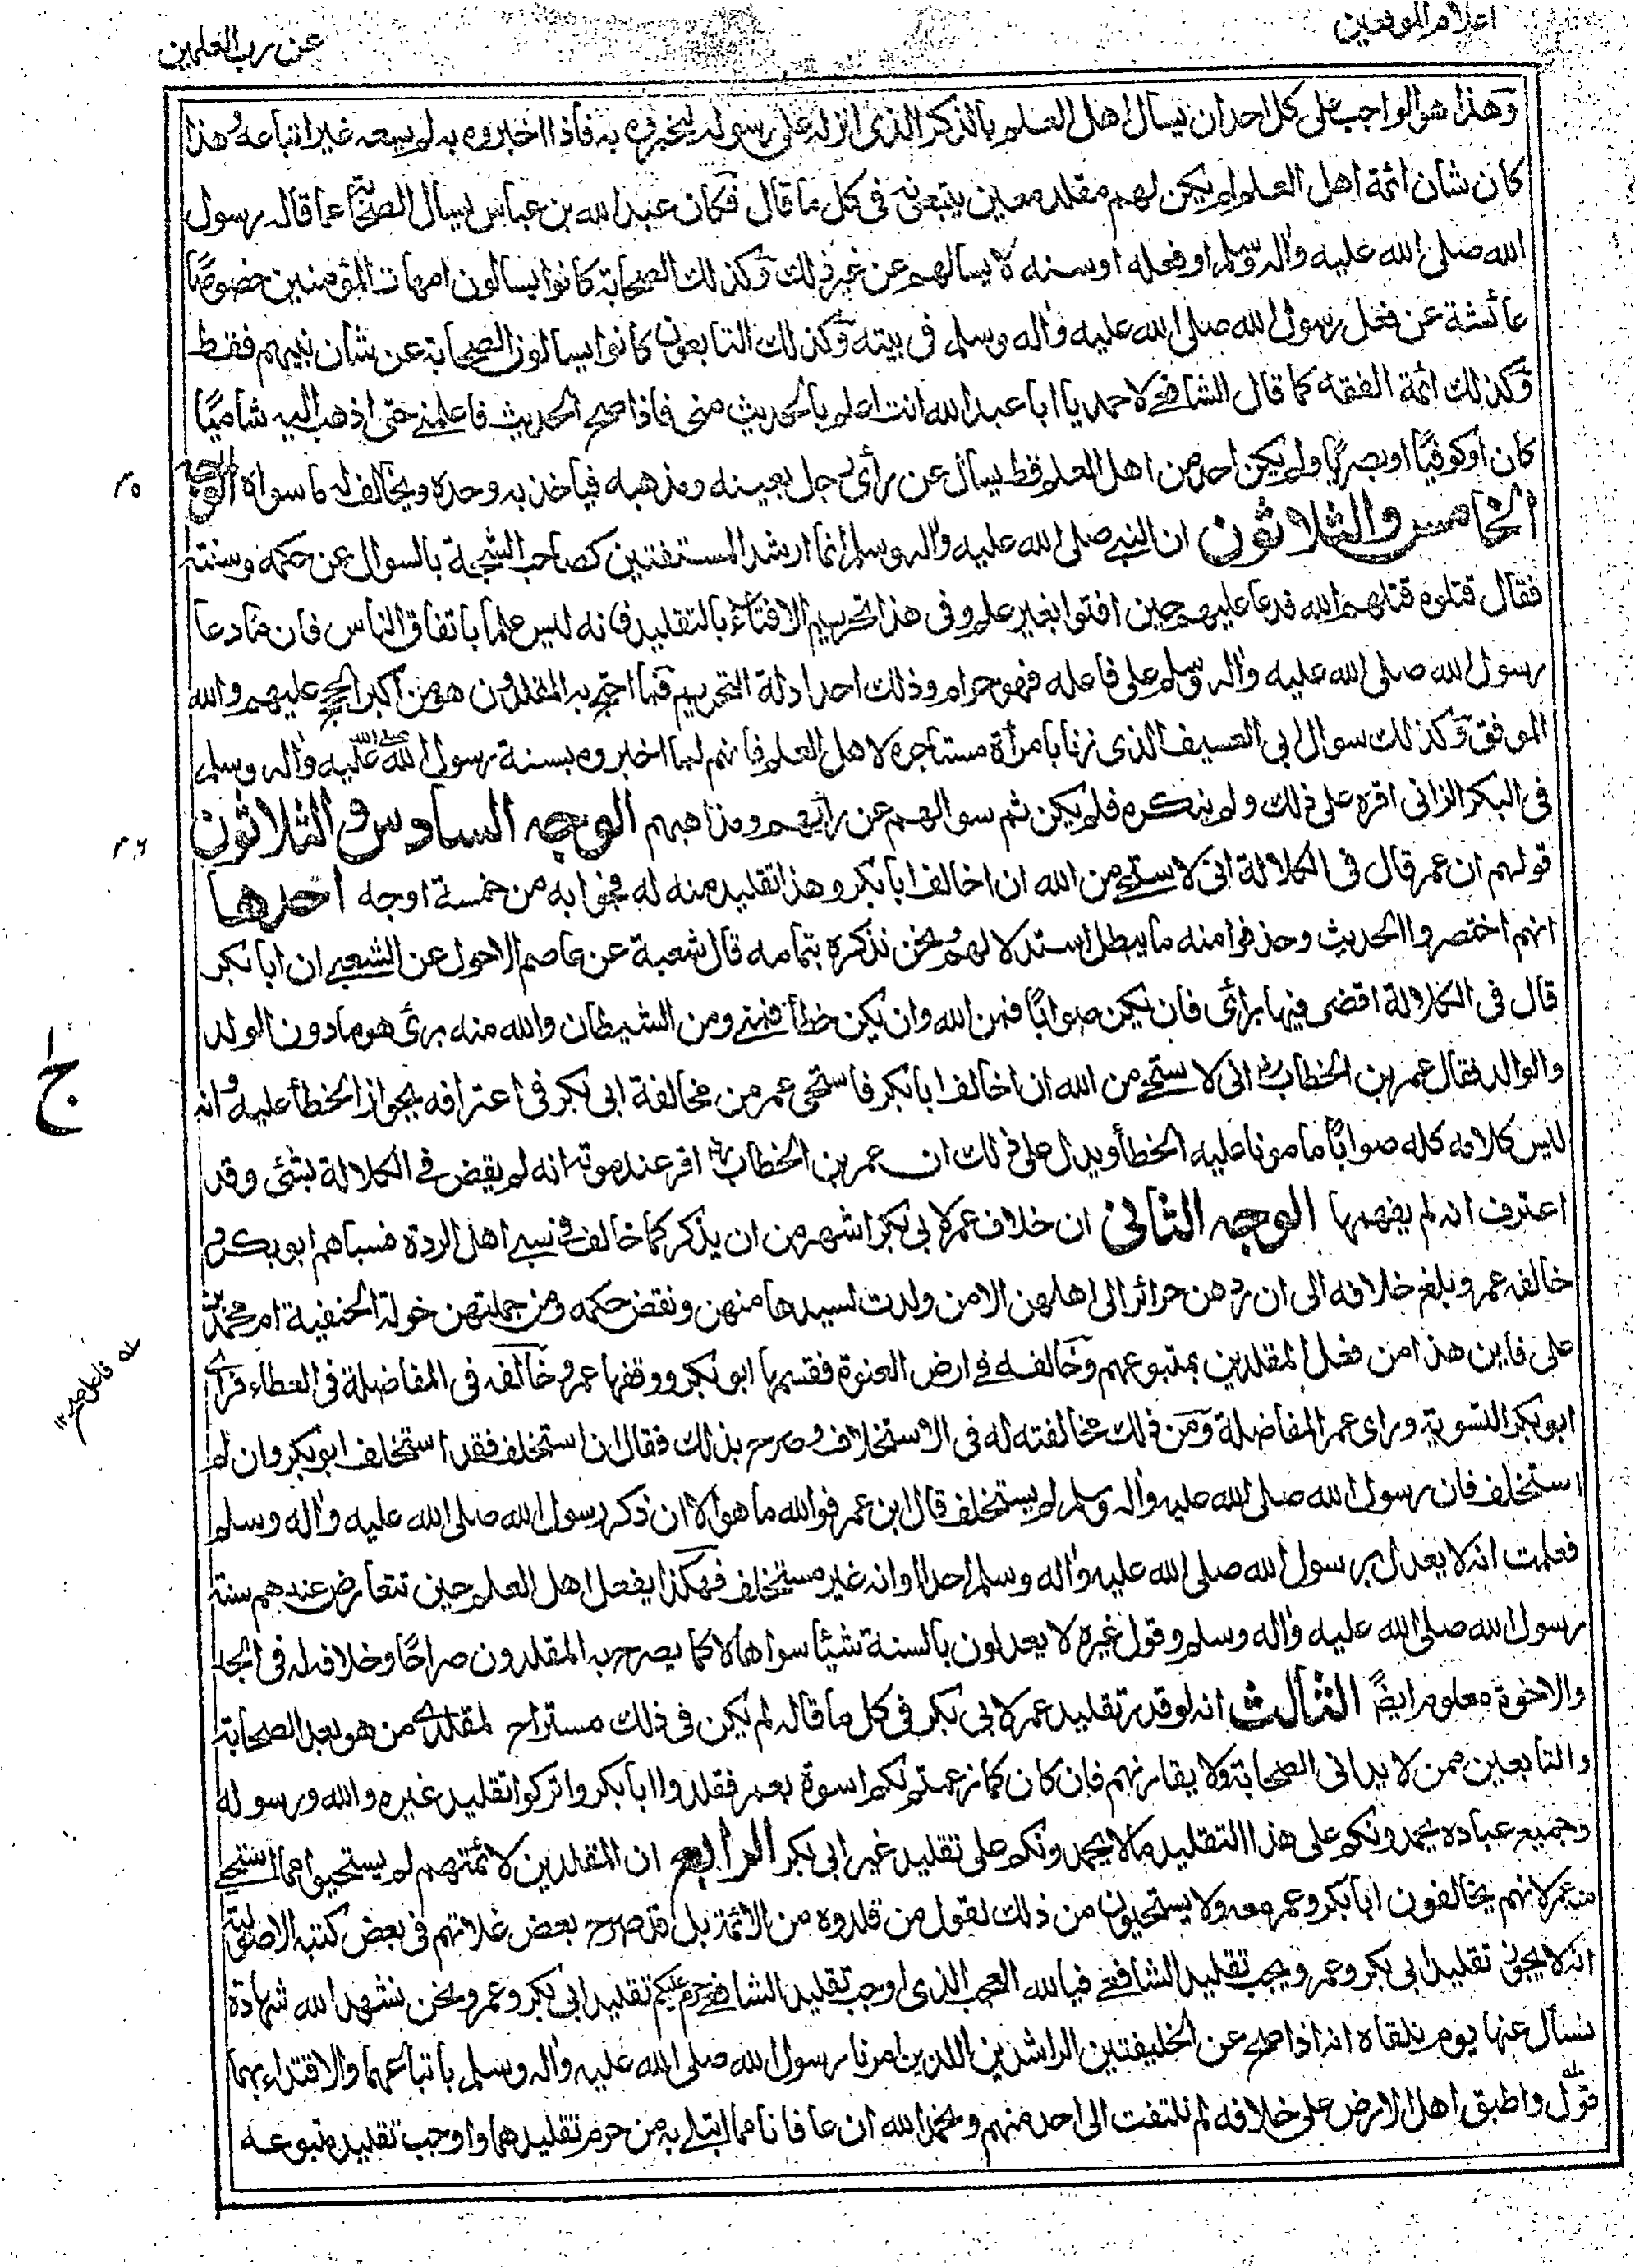 اعلام الموقعين
عن رب العلمين
وهذا هو الواجب على كل احد ان يسأل اهل العلم بالذكر الذى انزله على رسوله ليخبروه به فاذا اخبروه به لم يسعه غير اتباعه وهذا
كان شان ائمة اهل العلم لم يكن لهم مقلد معين يتبعونه فى كل ما قال فكان عبد الله بن عباس يسال الصحابة عما قاله رسول
الله صلى الله عليه واله وسلم او فعله او سنه لا يسألهم عن غير ذلك وكذلك الصحابة كانوا يسالون امهات المؤمنين خصوصًا
عائشة عن فعل رسول الله صلى الله عليه واله وسلم فى بيته وكذلك التابعون كانوا يسالون الصحابة عن شان نبيهم فقط
وكذلك ائمة الفقه كما قال الشافعے لاحمد يا ابا عبد الله انت اعلم بالحديث منى فاذا صح الحديث فاعلمنے حتى اذهب اليه شاميًا
كان او كوفيًا او بصريًا ولم يكن احد من اهل العلم قط يسأل عن رأى رجل بعينه ومذهبه فياخذ به وحده ويخالف له ما سواه الوجه
٣٥
الخامس والثلاثون ان النبے صلى الله عليه واله وسلم انما ارشد المستفتين كصاحب الشجة بالسوال عن حكمه وسنته
فقال قتلوه قتلهم الله فدعا عليهم حين افتوا بغير علم وفى هذا تحريم الافتاء بالتقليد فانه ليس علما باتفاق الناس فان ما دعا
رسول الله صلى الله عليه واله وسلم على فاعله فهو حرام وذلك احد ادلة التحريم فما احتج به المقلدون هو من اكبر الحجج عليهم والله
الموفق وكذلك سوال ابى العسيف الذى زنا بامرأة مستاجره لاهل العلم فانهم لما اخبروه بسنة رسول الله صلى الله عليه واله وسلم
فى البكر الزانى اقره على ذلك ولم ينكره فلم يكن ثم سوالهم عن رأيهم ومذاهبهم الوجه السادس والثلاثون
٣٦
قولهم ان عمر قال فى الكلالة انى لاستحے من الله ان اخالف ابا بكر وهذا تقليد منه له فجوابه من خمسة اوجه احدها
انهم اختصروا الحديث وحذفوا منه ما يبطل استدلالهم ونحن نذكره بتمامه قال شعبة عن عاصم الاحول عن الشعبے ان ابا بكر
قال فى الكلالة اقضى فيها برأئى فان يكن صوابًا فمن الله وان يكن خطأ فمنے ومن الشيطان والله منه برئ هو ما دون الولد
والوالد فقال عمر بن الخطاب انى لاستحے من الله ان اخالف ابا بكر فاستحى عمر من مخالفة ابى بكر فى اعترافه بجواز الخطأ عليه وانه
ليس كلامه كله صوابًا مامونا عليه الخطأ ويدل على ذلك ان عمر بن الخطاب اقر عند موته انه لم يقض فے الكلالة بشئى وقد
اعترف انه لم يفهمها الوجه الثانى ان خلاف عمر لابى بكر اشهر من ان يذكر كما خالفه فے سبے اهل الردة فسباهم ابو بكر و
خالفه عمر وبلغ خلافه الى ان ردهن حرائر الى اهلهن الا من ولدت لسيدها منهن ونقض حكمه ومن جملتهن خولة الحنفية ام محمد بن
على فاين هذا من فعل المقلدين بمتبوعهم وخالفه فے ارض العنوة فقسمها ابو بكر ووقفها عمر وخالفه فى المفاضلة فى العطاء فرأى
ابو بكر التسوية ورأى عمر المفاضلة ومن ذلك مخالفته له فى الاستخلاف وصرح بذلك فقال ان استخلف فقد استخلف ابو بكر وان لم
استخلف فان رسول الله صلى الله عليه واله وسلم لم يستخلف قال ابن عمر فوالله ما هو الا ان ذكر رسول الله صلى الله عليه واله وسلم
فعلمت انه لا يعدل برسول الله صلى الله عليه واله وسلم احدا وانه غير مستخلف فهكذا يفعل اهل العلم حين تتعارض عندهم سنة
رسول الله صلى الله عليه واله وسلم وقول غيره لا يعدلون بالسنة شيئا سواها لا كما يصرح به المقلدون صراحًا وخلافه له فى الجد
والاخوة معلوم ايضً الثالث انه لو قدر تقليد عمر لابى بكر فى كل ما قاله لم يكن فى ذلك مستراح لمقلدى من هو بعد الصحابة
والتابعين ممن لا يدانى الصحابة ولا يقاربهم فان كان كما زعمتم لكم اسوة بعمر فقلدوا ابا بكر واتركوا تقليد غيره والله ورسوله
وجميع عباده يحمدونكم على هذا التقليد ما لا يحمدونكم على تقليد غير ابى بكر الرابع ان المقلدين لائمتهم لم يستحيوا مما استحى
منه عمر لانهم يخالفون ابا بكر وعمر معه ولا يستحيون من ذلك لقول من قلدوه من الائمة بل قد صرح بعض غلاتهم فى بعض كتبه الاصولية
انه لا يجوز تقليد ابى بكر وعمر ويجب تقليد الشافعے فيالله العجب الذى اوجب تقليد الشافعے حرم عليكم تقليد ابى بكر وعمر ونحن نشهد الله شهادة
نسأل عنها يوم نلقاه انه اذا صح عن الخليفتين الراشدين اللذين امرنا رسول الله صلى الله عليه واله وسلم باتباعهما والاقتداء بهما
قول واطبق اهل الارض على خلافه لم نلتفت الى احد منهم ونحمد الله ان عافانا مما ابتلے به من حرم تقليدهما واوجب تقليد متبوعه